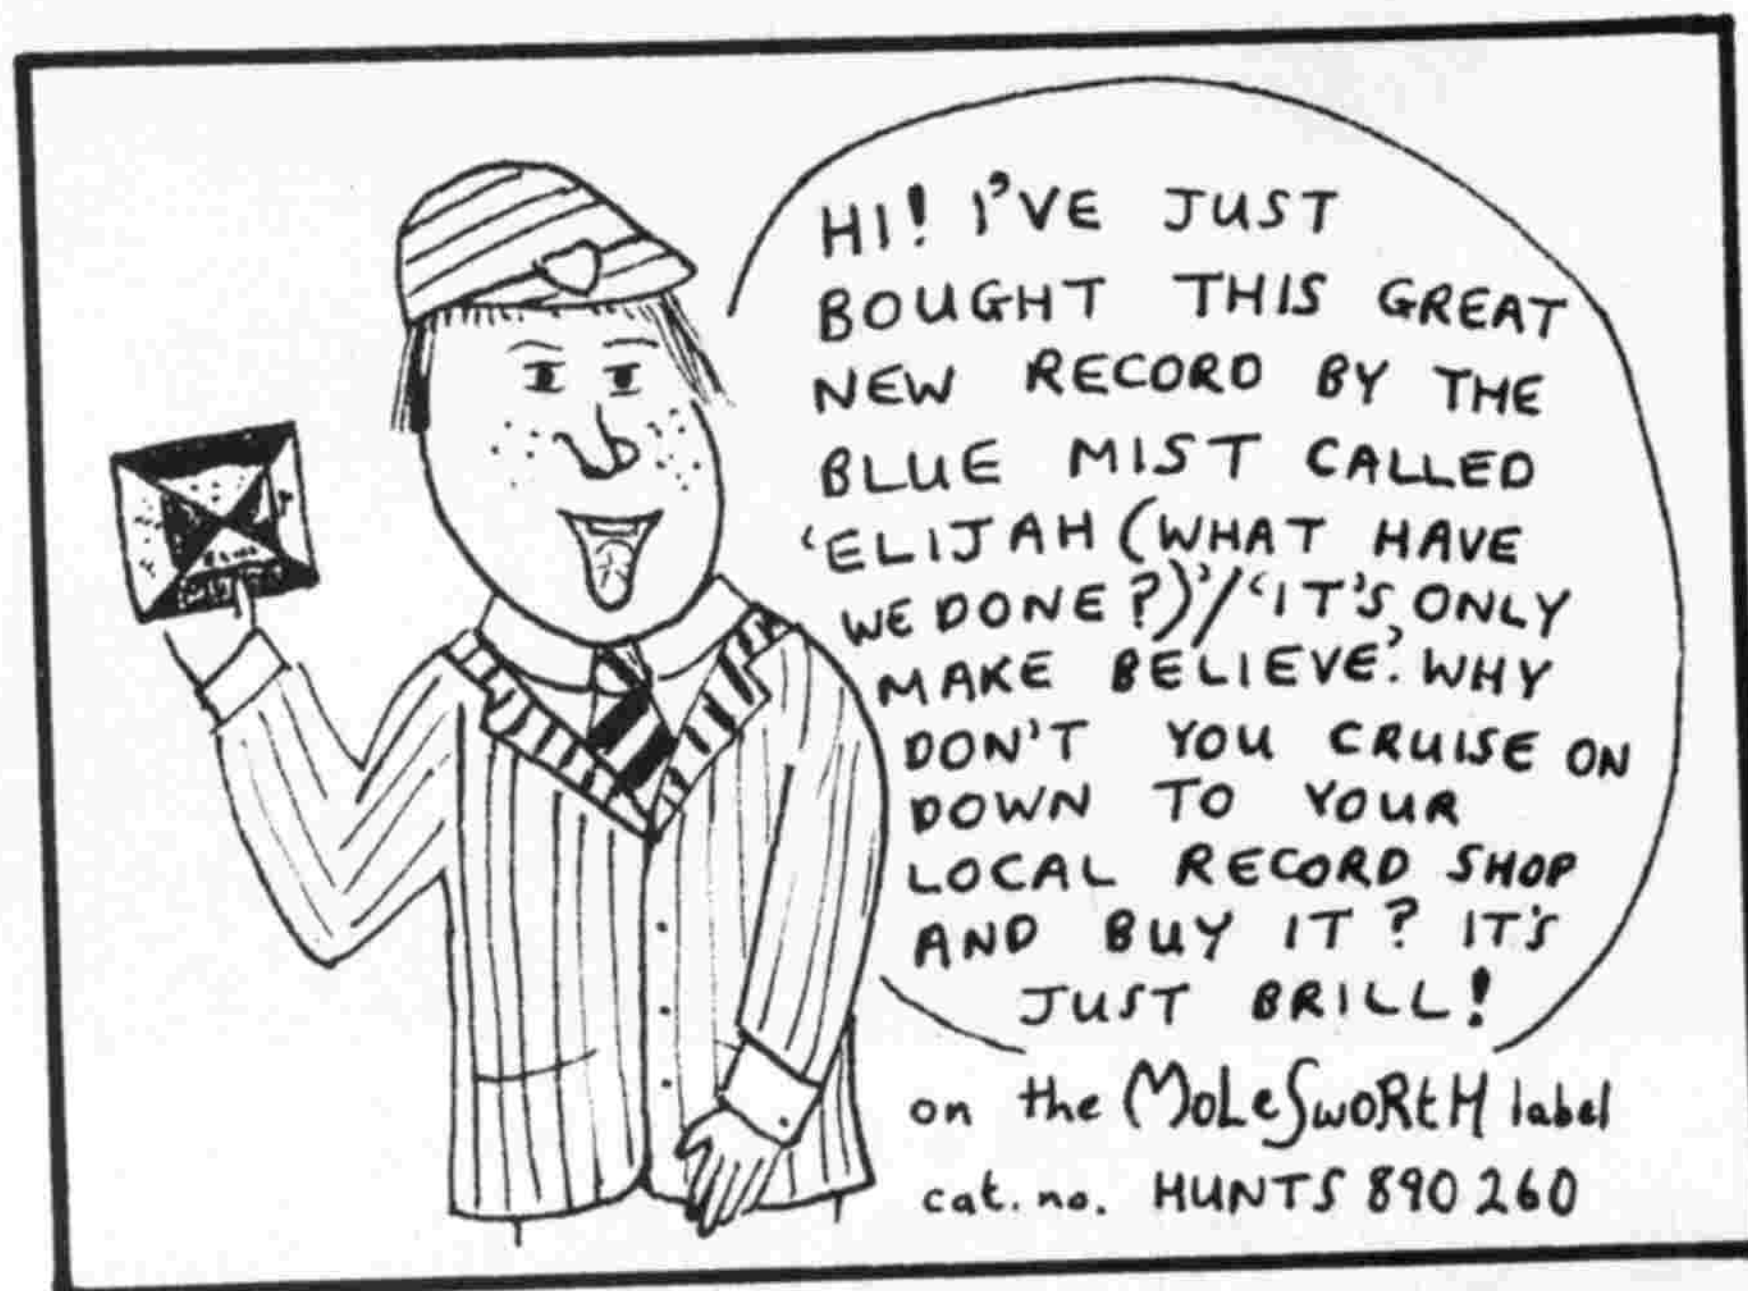 HI! I'VE JUST
BOUGHT THIS GREAT
NEW RECORD BY THE
BLUE MIST CALLED
'ELIJAH (WHAT HAVE
WE DONE?)'/'IT'S ONLY
MAKE BELIEVE'. WHY
DON'T YOU CRUISE ON
DOWN TO YOUR
LOCAL RECORD SHOP
AND BUY IT? IT'S
JUST BRILL!
on the MOLeSwoRtH label
cat. no. HUNTS 890 260